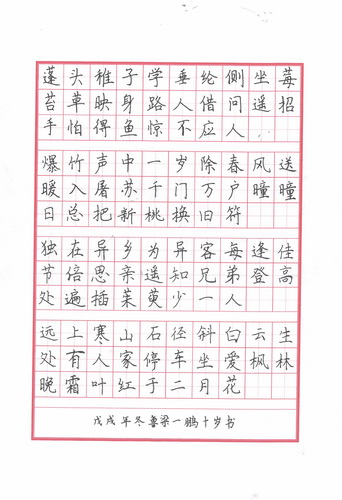 蓬头稚子学垂纶侧坐莓
苔草映身路人借问遥招
手怕得鱼惊不应人
爆竹声中一岁除春风送
暖入屠苏千门万户曈曈
日总把新桃换旧符
独在异乡为异客每逢佳
节倍思亲遥知兄弟登高
处遍插茱萸少一人
远上寒山石径斜白云生
处有人家停车坐爱枫林
晚霜叶红于二月花
戊戌年冬鲁梁一鹏十岁书